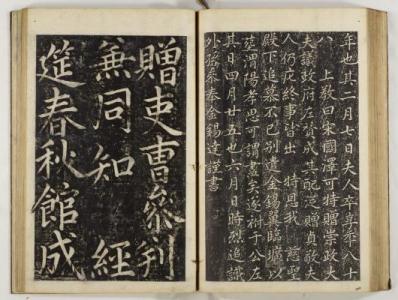 年也其二月七日夫人卒年八十
八 上教曰宋國澤可特贈崇政大
夫議政府左贊成其配從贈貞敬夫
人仍庀終事皆出 特恩我 慈聖
殿下追慕不已別遣金錫翼臨壙以
渭陽孝思可謂盡矣遂祔于公左
其日四月廿五也六月日時烈追識
外孫參奉金錫達謹書
贈吏曹參判
兼同知 經
筵春秋館成